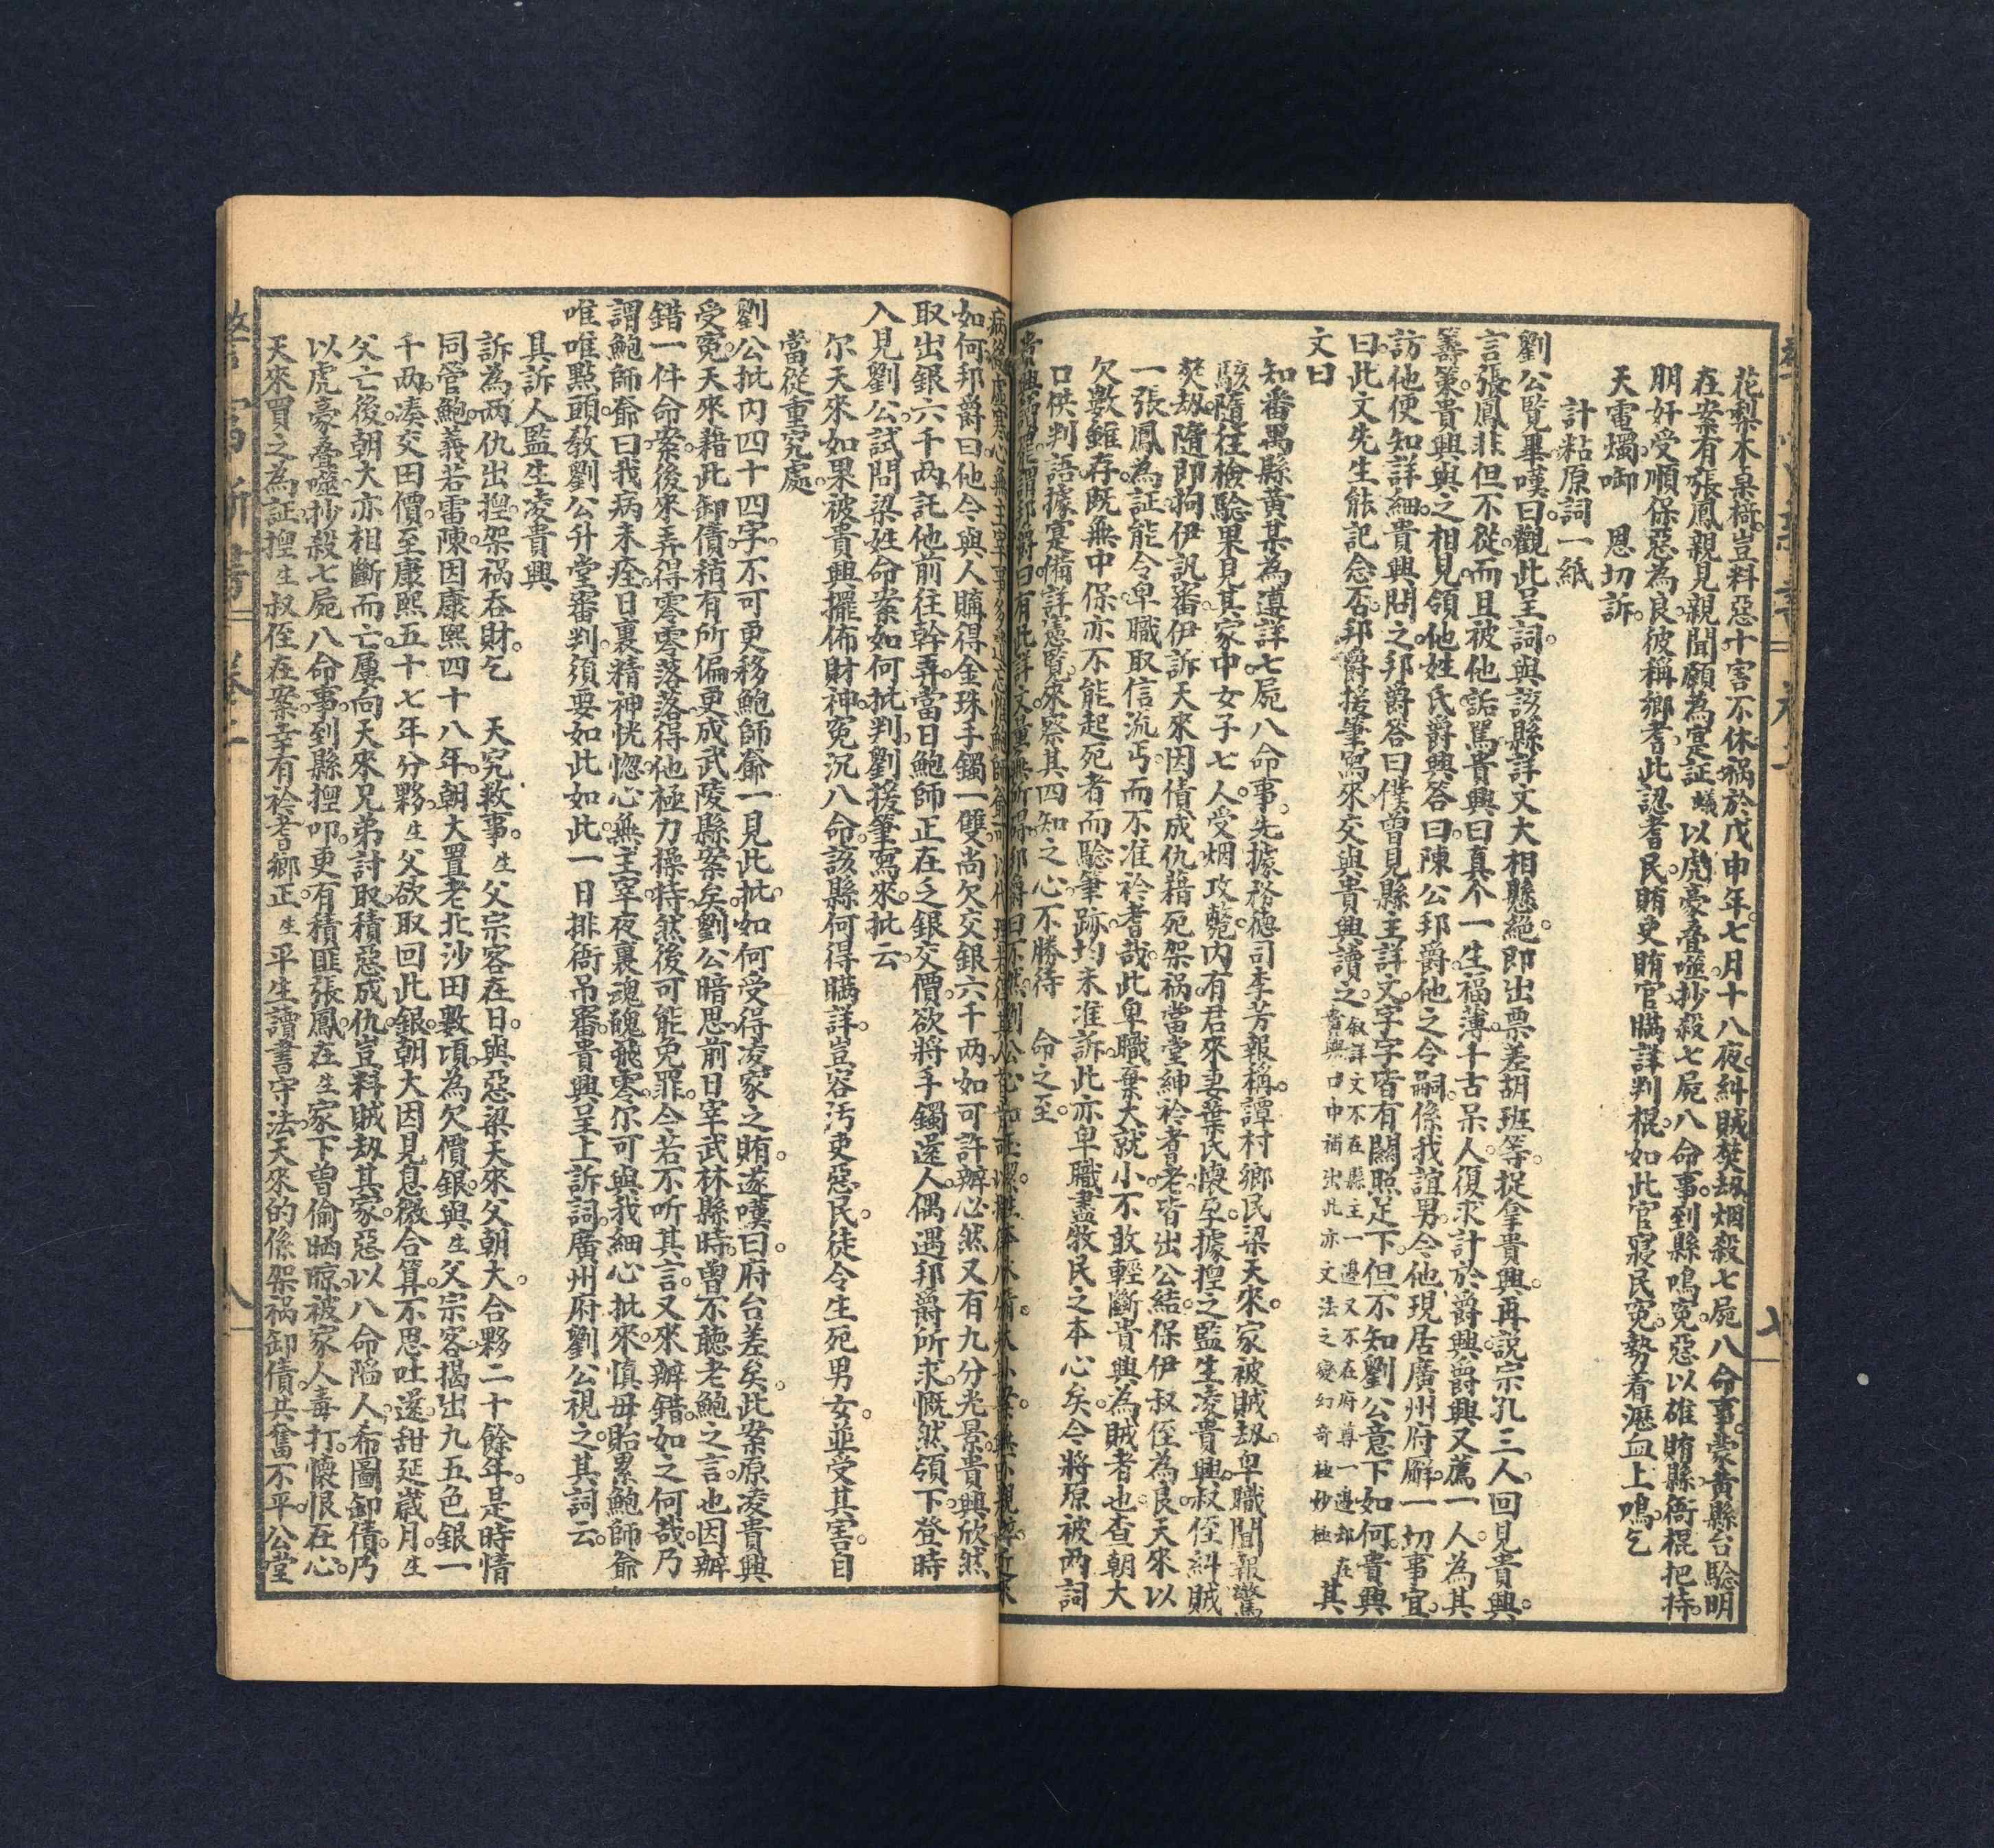 花梨木桌椅豈料惡十害不休禍於戊申年七月十八夜糾賊焚刼烟殺七屍八命事蒙黃縣台驗明
在案有張鳳親見親聞願為寔証蟻以虎豪叠噬抄殺七屍八命事到縣鳴寃惡以碓賄縣衙棍把持
朋奸受順保惡為良彼稱鄉耆此認耆民賄吏賄官瞞詳判棍如此官寢民寃勢着瀝血上鳴乞
天電燭啣　恩切訴
計粘原詞一紙
劉公覽畢嘆曰觀此呈詞與該縣詳文大相懸絕即出票差胡班等捉拿貴興再説宗孔三人回見貴興
言張鳳非但不從而且被他詬罵貴興曰真个一生福薄千古呆人復求計於爵興爵興又薦一人為其
籌策貴興與之相見領他姓氏爵興答曰陳公邦爵他之令嗣係我誼男今他現居廣州府廨一切事宜
訪他便知詳細貴興問之邦爵答曰僕曾見縣主詳文字字皆有關照足下但不知劉公意下如何貴興
曰此文先生能記念否邦爵援筆寫來交與貴興讀之敘詳文不在縣主一邊又不在府尊一邊却在貴興口中補出此亦文法之變幻奇極妙極其
文曰
知番禺縣黃某為遵詳七屍八命事先據務德司李芳報稱譚村鄉民梁天來家被賊刼卑職聞報驚
駭隨往檢驗果見其家中女子七人受烟攻斃內有君來妻葉氏懷孕據揑之監生凌貴興叔侄糾賊
焚刼隨即拘伊訊審伊訴天來因債成仇藉死架禍當堂紳衿耆老皆出公結保伊叔侄為良天來以
一張鳳為証能令卑職取信流丐而不准衿耆哉此卑職棄大就小不敢輕斷貴興為賊者也查朝大
欠數雖存既無中保亦不能起死者而驗筆跡均未准訴此亦卑職盡牧民之本心矣今將原被兩詞
口供判語據寔備詳憲覽來察其四知之心不勝待　命之至
如何邦爵曰他今與人購得金珠手鐲一雙尚欠交銀六千両如可許辦必然又有九分光景貴興欣然
取出銀六千両託他前往幹弄當日鮑師正在乏銀交價欲將手鐲還人偶遇邦爵所求慨然領下登時
入見劉公試問梁姓命案如何批判劉援筆寫來批云
尔天來如果被貴興擺佈財神寃沉八命該縣何得瞞詳豈容汚吏惡民徒令生死男女並受其害自
當從重究處
劉公批內四十四字不可更移鮑師爺一見此批如何受得凌家之賄遂嘆曰府台差矣此案原凌貴興
受寃天來藉此卸債稍有所偏更成武陵縣案矣劉公暗思前日宰武林縣時曾不聽老鮑之言也因辦
錯一件命案後來弄得零零落落得他極力操持然後可能免罪今若不听其言又來辦錯如之何哉乃
謂鮑師爺曰我病未痊日裏精神恍惚心無主宰夜裏魂魄飛零尔可與我細心批來慎毋貽累鮑師爺
唯唯點頭教劉公升堂審判須要如此如此一日排衙吊審貴興呈上訴詞廣州府劉公視之其詞云
具訴人監生凌貴興
訴為両仇出揑架禍吞財乞　天究救事生父宗客在日與惡梁天來父朝大合夥二十餘年是時情
同管鮑義若雷陳因康熙四十八年朝大置老北沙田數頃為欠價銀與生父宗客揭出九五色銀一
千両湊交田價至康熙五十七年分夥生父欲取回此銀朝大因見息微合算不思吐還甜延歲月生
父亡後朝大亦相斷而亡屢向天來兄弟討取積惡成仇豈料賊刼其家惡以八命陷人希圖卸債乃
以虎豪叠噬抄殺七屍八命事到縣揑叩更有積匪張鳳在生家下曽偷晒晾被家人毒打懷恨在心
天來買之為証揑生叔侄在案幸有衿耆鄉正生平生讀書守法天來的係架禍卸債共奮不平公堂